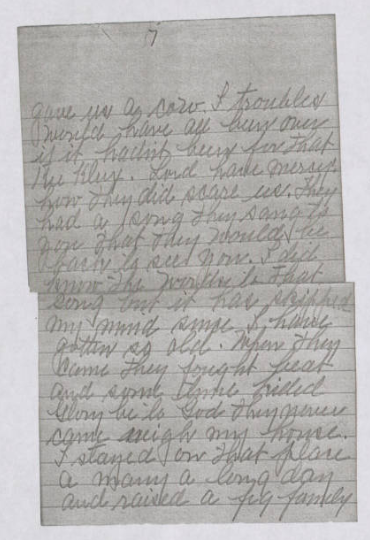 7
gave us a cow. I troubles
would have all bin over
if it hadint bin for that
Klu Klux. Lord have mercy
how they did scare us. They
had a song they sang to
you that they would be
back to see you. I did
know the words to that
song but it has skipped
my mind since I have
gotten so old. When they
came they fought beat
and some time killed
Glory be to God they never
came neigh my house.
I stayed on that place
a many a long day
and raised a big family